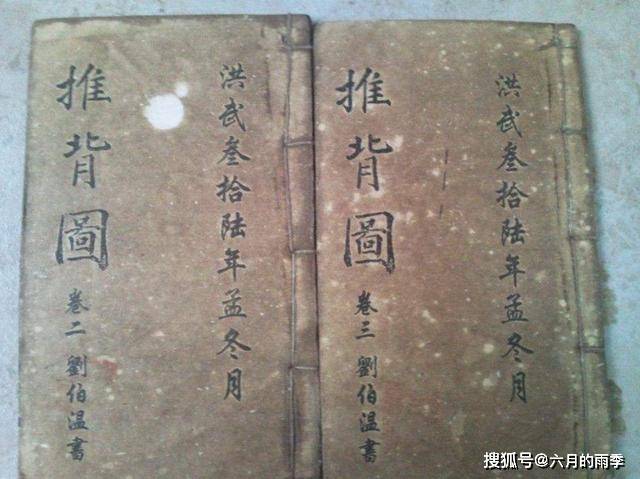 推背圖 卷二 劉伯温書
洪武叁拾陸年孟冬月
推背圖 卷三 劉伯温書
洪武叁拾陸年孟冬月
搜狐号@六月的雨季